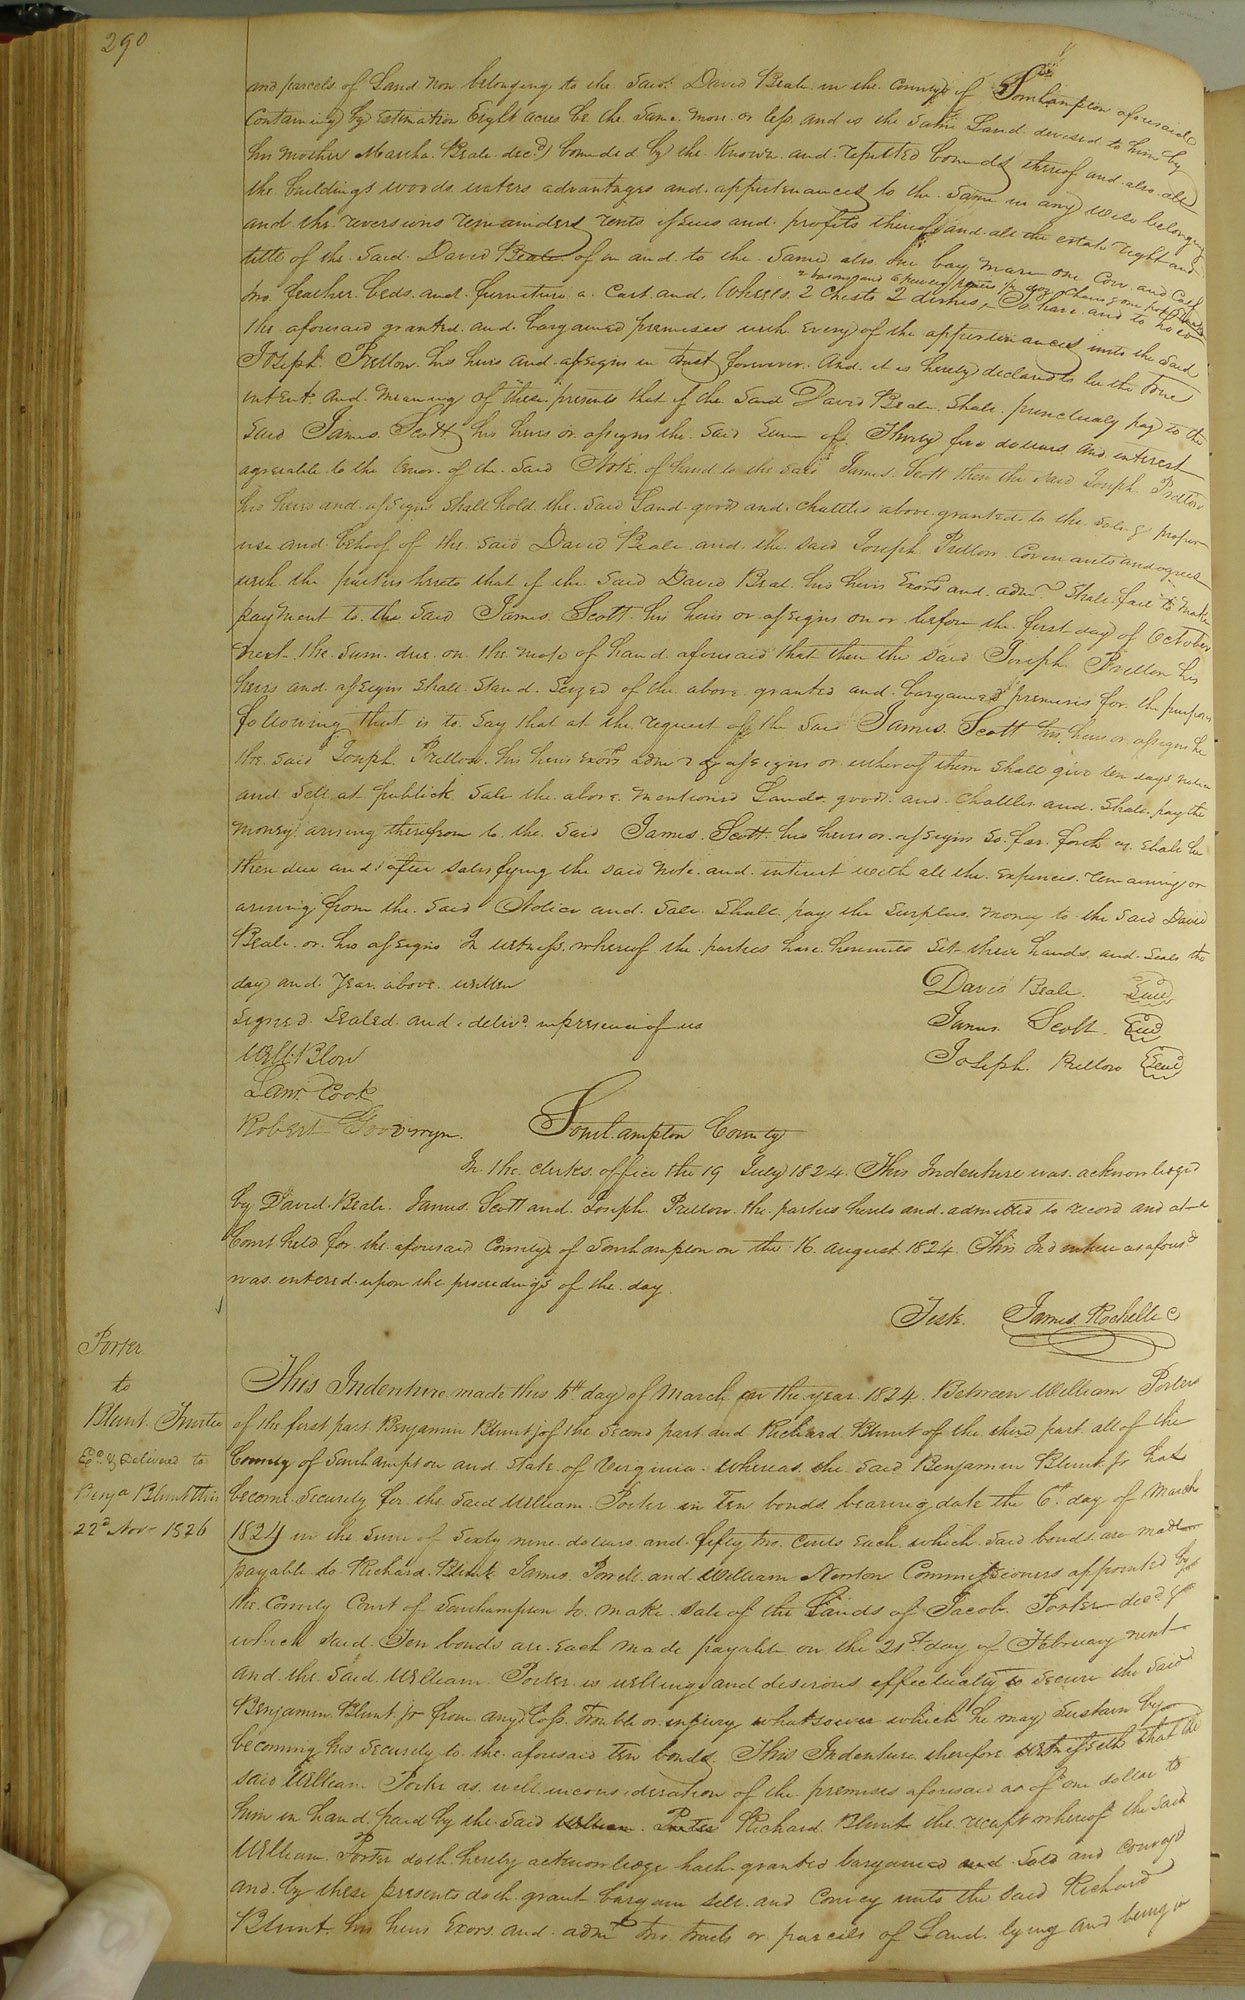 290
and parcels of Land now belonging to the Said David Beale in the County of Southampton aforesaid
Containing by Estimation Eight acres be the Same more or less and is the Same Land devised to him by
his mother Martha Beale decd) bounded by the Known and reputed bounds thereof and also all
the buildings woods waters advantages and appurtenances to the Same in any wise belonging
and the reversions remainders rents issues and profits thereof and all the estate right and
title of the Said David Beale of in and to the Same also One bay mare one Cow and Calf
2 basons and 6 pewter plates
two feather beds and furniture a Cart and Wheels 2 Chests 2 dishes To have and to hold
the aforesaid granted and bargained premises with Every of the appurtenances unto the Said
Joseph Prettow his heirs and assigns in trust forever. And it is hereby declared to be the True
intent and meaning of these presents that if the Said David Beale Shall punctualy pay to the
Said James Scott his heirs or assigns the Said Sum of Thirty five dollars and interest
agreeable to the tenor of the Said Note of hand to the Said James Scott then the Said Joseph Prettow
his heirs and assigns Shall hold the Said Land goods and Chattles above granted to the sole & proper
use and behoof of the Said David Beale and the Said Joseph Prettow Covenants and agrees
with the parties hereto that if the Said David Beal his heirs Exors and adms Shall fail to make
payment to the Said James Scott his heirs or assigns on or before the first day of October
next the Sum due on the note of hand aforesaid that then the Said Joseph Prettow his
heirs and assigns Shall Stand Seized of the above granted and bargained premises for the purposes
following that is to Say that at the request of the Said James Scott his heirs or assigns he
the Said Joseph Prettow his heirs Exors adms or assigns or either of them Shall give ten days notice
and Sell at publick Sale the above mentioned Lands goods and Chattles and Shall pay the
money arising therefrom to the Said James Scott his heirs or assigns So far forth as Shall be
then due and after Satisfying the Said Note and interest with all the Expences remaining or
arising from the Said Notice and Sale Shall pay the Surplus money to the Said David
Beale or his assigns In witness whereof the parties have hereunto Set their hands and Seals the
day and Year above written
David Beale Seal
Signed Sealed and delivd in presence of us
James Scott Seal
Will: Blow
Joseph Prettow Seal
Lanr Cook
Robert Goodwyn
Southampton County
In the clerks office the 19 July 1824. This Indenture was acknowledged
by David Beale James Scott and Joseph Prettow the parties hereto and admitted to record and at a
Court held for the aforesaid County of Southampton on the 16 August 1824 This Indenture as aforesd
was entered upon the proceedings of the day
Teste James Rochelle C
Porter
to
Blunt Trustee
Ed. & Delivered to
Benja Blunt this
22d Nov 1826
This Indenture made this 15th day of March in the year 1824 Between William Porter
of the first part Benjamin Blunt jr of the Second part and Richard Blunt of the third part all of the
County of Southampton and State of Virginia Whereas the Said Benjamin Blunt Jr hath
become Security for the Said William Porter in Ten bonds bearing date the 6th day of March
1824 in the Sum of Sixty nine dollars and fifty two Cents Each which Said bonds are made
payable to Richard Blunt James Powell and William Newton Commissioners appointed by
the County Court of Southampton to make Sale of the Lands of Jacob Porter decd &
which Said Ten bonds are Each made payable on the 21st day of February next
and the Said William Porter is willing and desirous effectually to Secure the Said
Benjamin Blunt jr from any loss trouble or injury whatsoever which he may Sustain by
becoming his Security to the aforesaid ten bonds This Indenture therefore witnesseth that the
Said William Porter as well inconsideration of the premises aforesaid as of one dollar to
him in hand paid by the Said William Porter Richard Blunt the receipt whereof the Said
William Porter doth hereby acknowledge hath granted bargained and Sold and Convey'd
and by these presents doth grant bargain Sell and Convey unto the Said Richard
Blunt his heirs Exors and adms two tracts or parcels of Land lying and being in